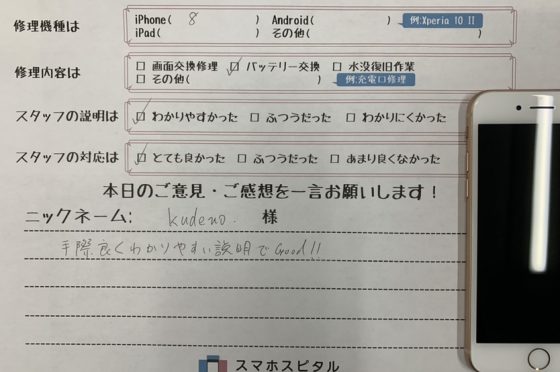 修理機種は
iPhone( 8 ) Android( ) 例:Xperia 10 II
iPad( ) その他( )
修理内容は
□ 画面交換修理 ☑ バッテリー交換 □ 水没復旧作業
□ その他( ) 例:充電口修理
スタッフの説明は ☑ わかりやすかった □ ふつうだった □ わかりにくかった
スタッフの対応は ☑ とても良かった □ ふつうだった □ あまり良くなかった
本日のご意見・ご感想を一言お願いします!
ニックネーム: kudeno. 様
手際良くわかりやすい説明でGood!!
スマホスピタル